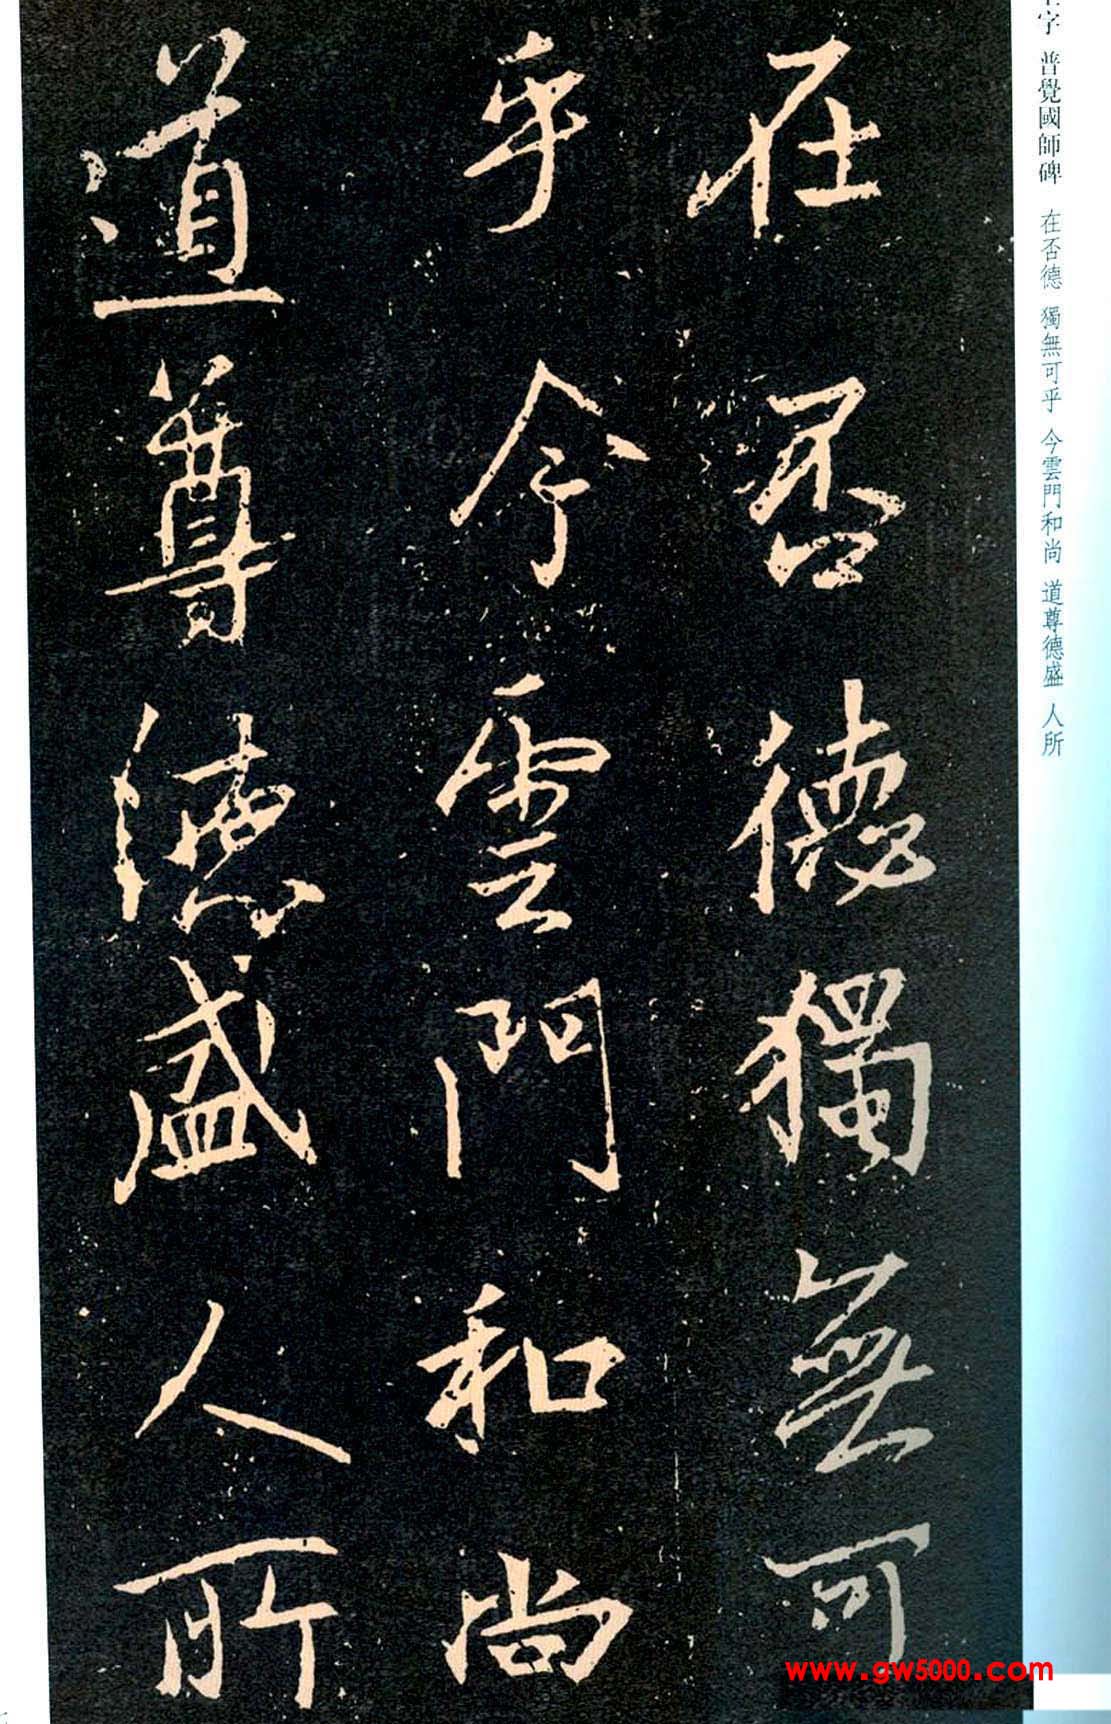 字 普覺國師碑 在否德 獨無可乎 今雲門和尚 道尊德盛 人所
在否德獨無可
乎今雲門和尚
道尊德盛人所
www.gw5000.com